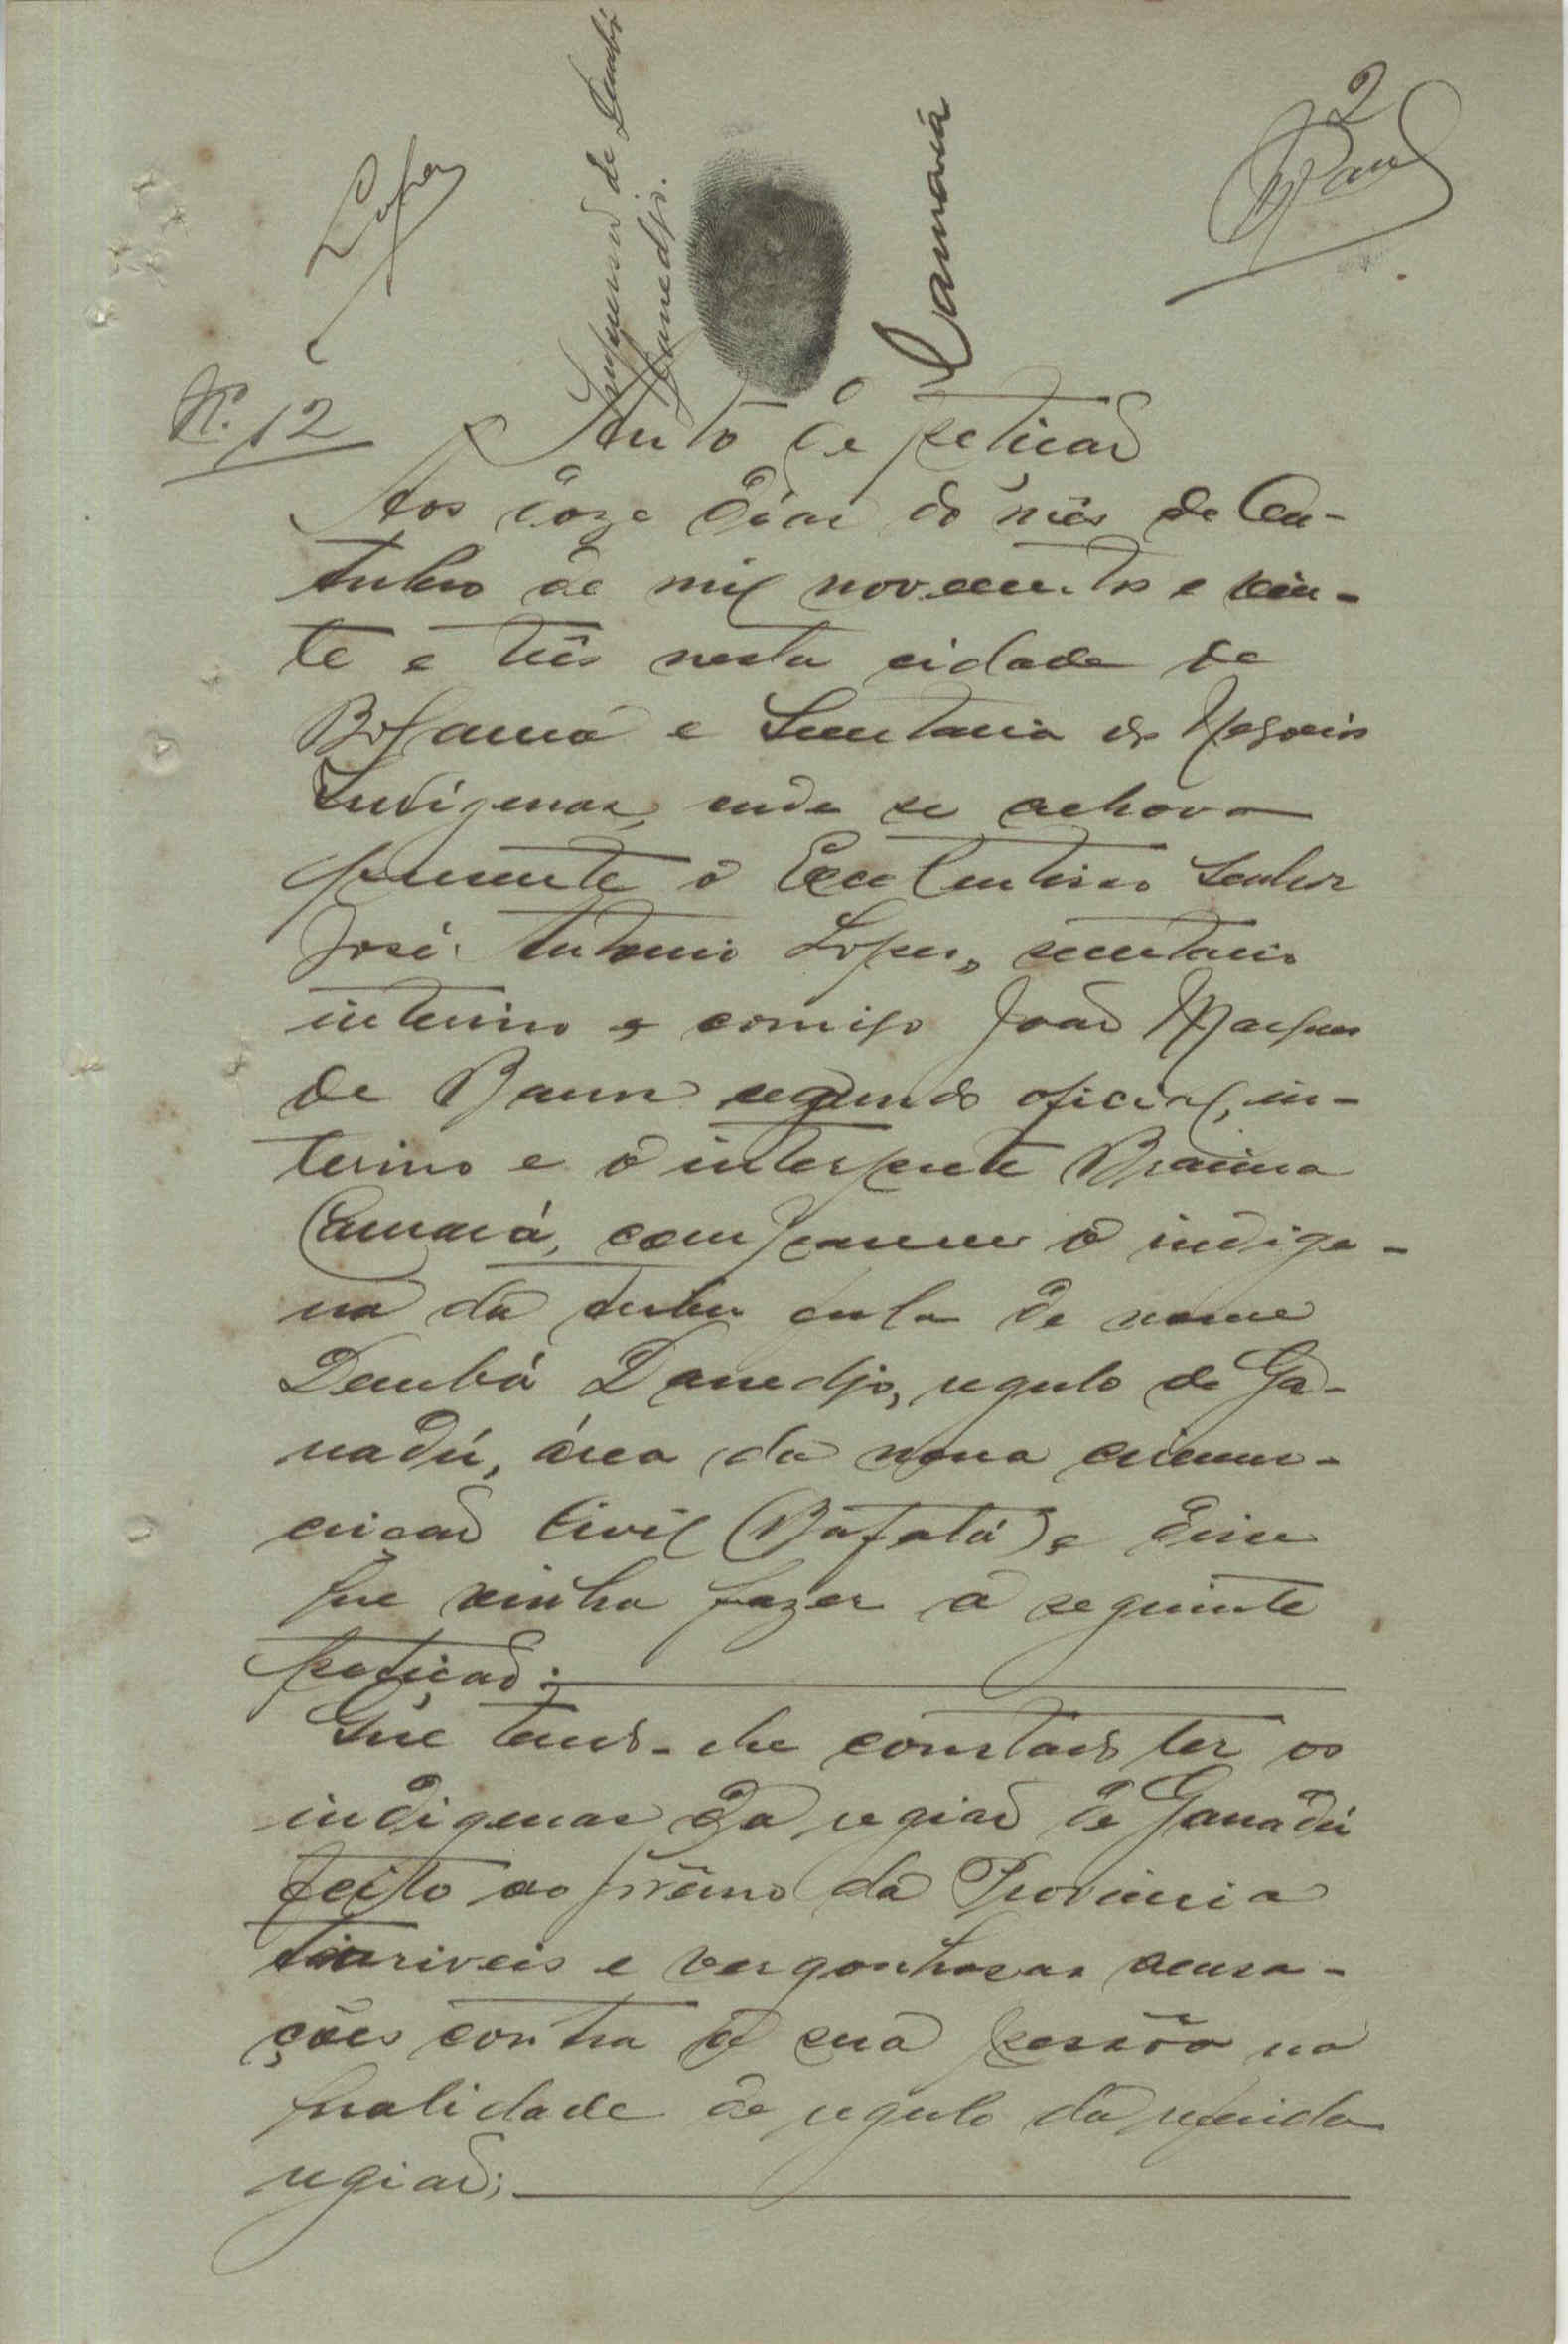 2
Lopes
Impressão de Dembá
Danedjo.
Camará
N.º 12
Auto de petição
Aos doze dias do mês de Ou-
tubro de mil novecentos e vin-
te e três nesta cidade de
Bolama e Secretaria dos Negocios
Indígenas, onde se achava
presente o Excelentissimo Senhor
José Antonio Lopes, secretario
interino e comigo João Marques
de Barros segundo oficial, in-
terino e o interprete Braima
Camará, compareceu o indige-
na da tribu fula de nome
Dembá Danedjo, regulo de Ga-
nadú, área da nona circuns-
crição Civil (Bafatá) e disse
que vinha fazer a seguinte
petição:
Que tendo-lhe constado ter os
indigenas da região de Ganadú
feito ao govêrno da Provincia
terriveis e vergonhosas acusa-
ções contra a sua pessôa na
qualidade de regulo da referida
região;